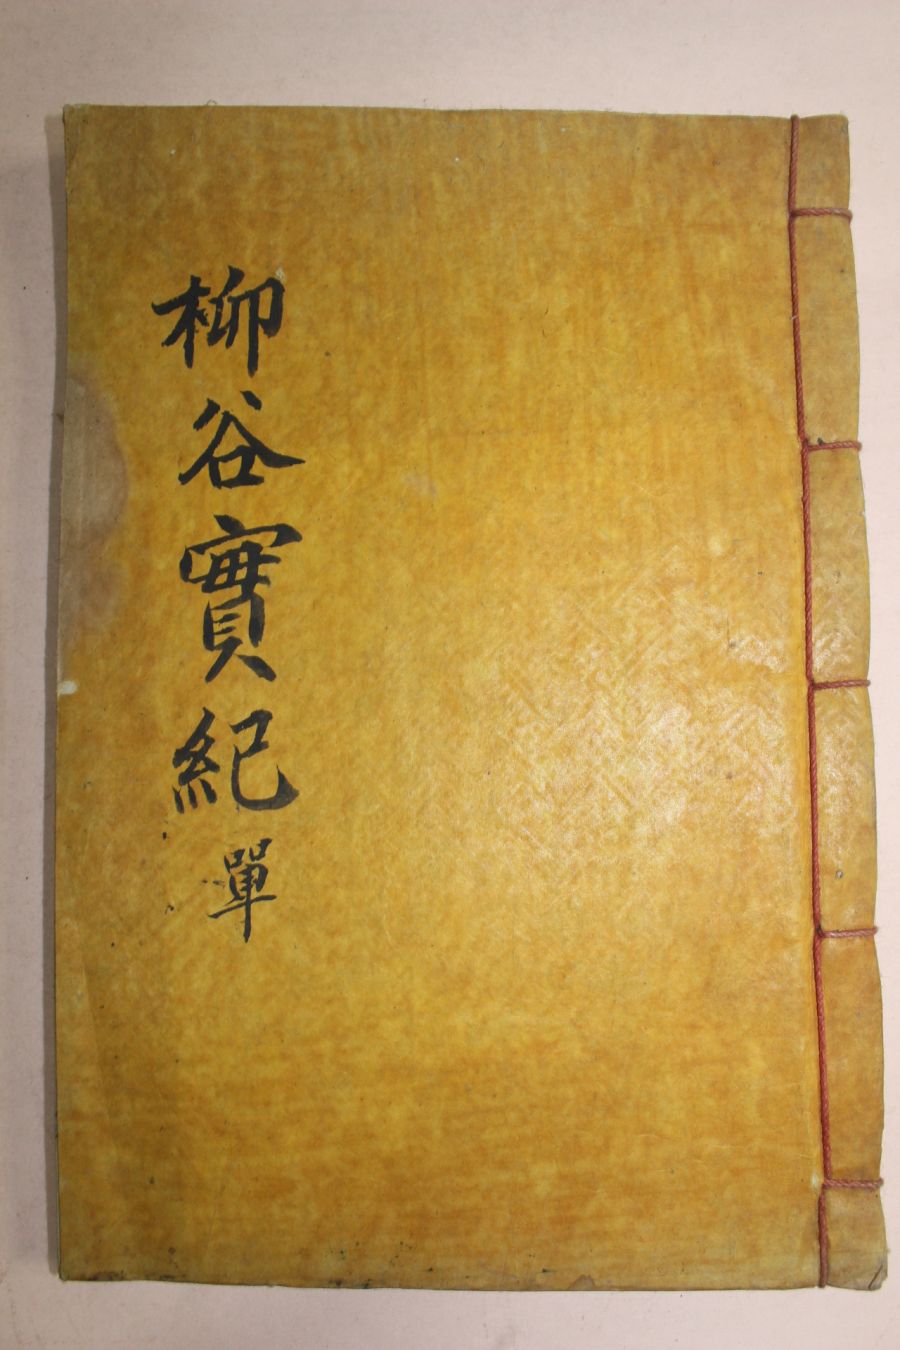 柳谷實紀單